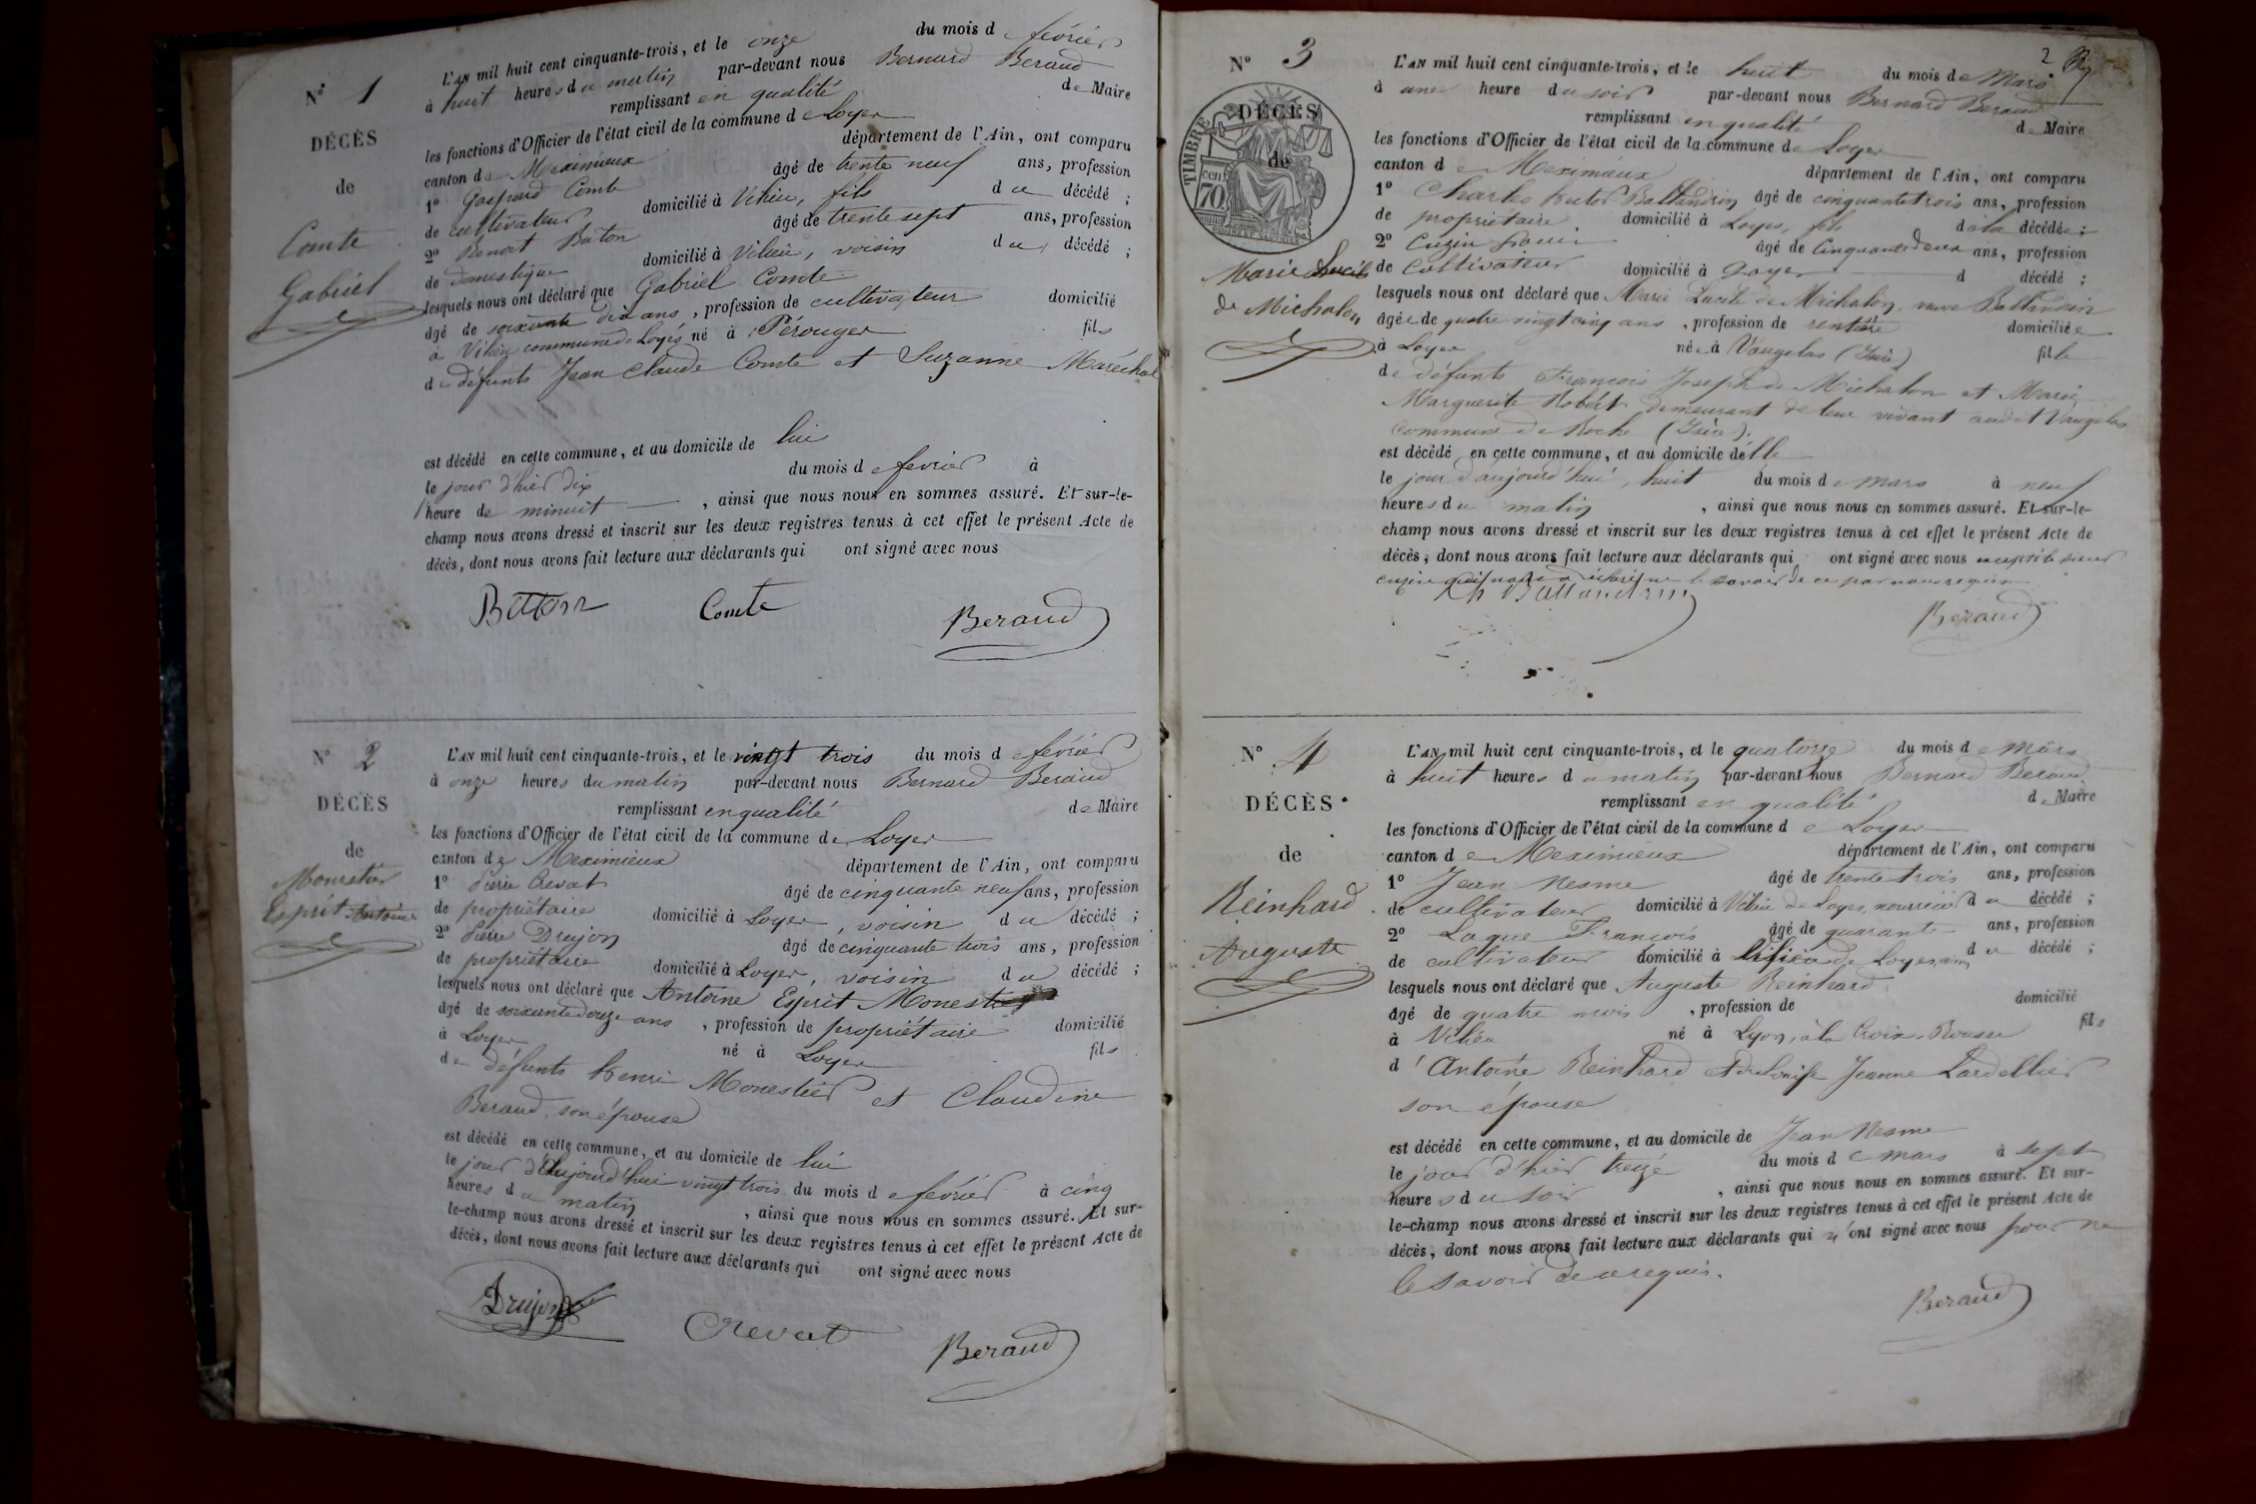 N° 1
DÉCÈS
de
Comte
Gabriel
L'AN mil huit cent cinquante-trois, et le onze du mois de février
à huit heures du matin par-devant nous Bernard Beraud
remplissant en qualité de Maire
les fonctions d'Officier de l'état civil de la commune de Loyes
canton de Meximieux département de l'Ain, ont comparu
1° Gaspard Comte âgé de trente neuf ans, profession
de cultivateur domicilié à Vilieu, fils du décédé ;
2° Benoit Baton âgé de trente sept ans, profession
de domestique domicilié à Vilieu, voisin du décédé ;
lesquels nous ont déclaré que Gabriel Comte
âgé de soixante dix ans, profession de cultivateur domicilié
à Vilieu commune de Loyes né à Pérouges fils
de défunts Jean Claude Comte et Suzanne Maréchal
est décédé en cette commune, et au domicile de lui
le jour d'hier dix du mois de fevrier à
heure de minuit , ainsi que nous nous en sommes assuré. Et sur-le-
champ nous avons dressé et inscrit sur les deux registres tenus à cet effet le présent Acte de
décès, dont nous avons fait lecture aux déclarants qui ont signé avec nous
Baton Comte Beraud
N° 2
DÉCÈS
de
Monestier
Esprit Antoine
L'AN mil huit cent cinquante-trois, et le vingt trois du mois de février
à onze heures du matin par-devant nous Bernard Beraud
remplissant en qualité de Maire
les fonctions d'Officier de l'état civil de la commune de Loyes
canton de Meximieux département de l'Ain, ont comparu
1° Pierre Crevat âgé de cinquante neuf ans, profession
de propriétaire domicilié à Loyes, voisin du décédé ;
2° Pierre Drujon âgé de cinquante trois ans, profession
de propriétaire domicilié à Loyes, voisin du décédé ;
lesquels nous ont déclaré que Antoine Esprit Monestier
âgé de soixante douze ans, profession de propriétaire domicilié
à Loyes né à Loyes fils
de défunts Henri Monestier et Claudine
Beraud, son épouse
est décédé en cette commune, et au domicile de lui
le jour d'aujourd'hui vingt trois du mois de février à cinq
heures du matin , ainsi que nous nous en sommes assuré. Et sur-
le-champ nous avons dressé et inscrit sur les deux registres tenus à cet effet le présent Acte de
décès, dont nous avons fait lecture aux déclarants qui ont signé avec nous
Drujon Crevat Beraud
2
N° 3
DÉCÈS
de
TIMBRE
70 cen
Marie Lucile
de Michalon
L'AN mil huit cent cinquante-trois, et le huit du mois de Mars
à une heure du soir par-devant nous Bernard Beraud
remplissant en qualité de Maire
les fonctions d'Officier de l'état civil de la commune de Loyes
canton de Meximieux département de l'Ain, ont comparu
1° Charles Ballandrin âgé de cinquante trois ans, profession
de propriétaire domicilié à Loyes, fils de la décédée ;
2° Cuzin Louis âgé de cinquante deux ans, profession
de cultivateur domicilié à Loyes d décédé ;
lesquels nous ont déclaré que Marie Lucile de Michalon, veuve Ballandrin
âgée de quatre vingt cinq ans, profession de rentière domiciliée
à Loyes née à Vaugelas (Isère) fille
de défunts François Joseph de Michalon et Marie
Marguerite Robert demeurant de leur vivant audit Vaugelas
commune de Roche (Isère).
est décédé en cette commune, et au domicile d'elle
le jour d'aujourd'hui, huit du mois de mars à neuf
heures du matin , ainsi que nous nous en sommes assuré. Et sur-le-
champ nous avons dressé et inscrit sur les deux registres tenus à cet effet le présent Acte de
décès, dont nous avons fait lecture aux déclarants qui ont signé avec nous excepté le sieur
cuzin qui a déclaré ne le savoir de ce par nous requis
Ch Ballandrin Beraud
N° 4
DÉCÈS
de
Reinhard
Auguste
L'AN mil huit cent cinquante-trois, et le quatorze du mois de mars
à huit heures du matin par-devant nous Bernard Beraud
remplissant en qualité de Maire
les fonctions d'Officier de l'état civil de la commune de Loyes
canton de Meximieux département de l'Ain, ont comparu
1° Jean Nesme âgé de trente trois ans, profession
de cultivateur domicilié à Vilieu de Loyes, nourricier du décédé ;
2° Laque François âgé de quarante ans, profession
de cultivateur domicilié à Vilieu de Loyes, ami du décédé ;
lesquels nous ont déclaré que Auguste Reinhard
âgé de quatre mois, profession de domicilié
à Vilieu né à Lyon, à la Croix Rousse fils
d'Antoine Reinhard et de Louise Jeanne Lardellier
son épouse
est décédé en cette commune, et au domicile de Jean Nesme
le jour d'hier treize du mois de mars à sept
heures du soir , ainsi que nous nous en sommes assuré. Et sur-
le-champ nous avons dressé et inscrit sur les deux registres tenus à cet effet le présent Acte de
décès, dont nous avons fait lecture aux déclarants qui n'ont signé avec nous pour ne
le savoir de ce requis.
Beraud